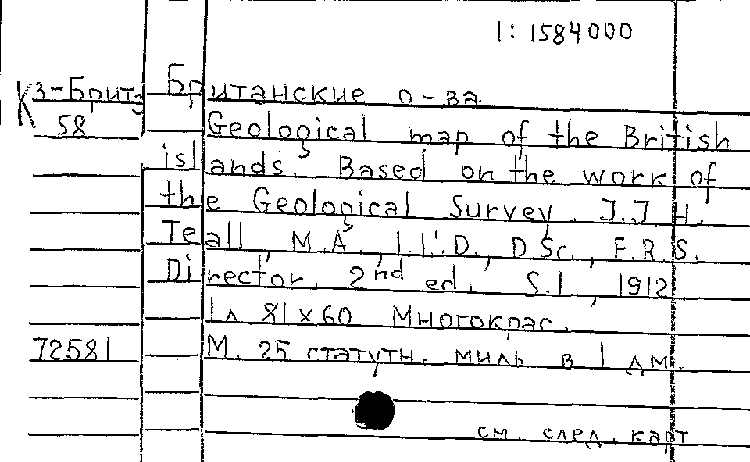 1:1584000
Кз-Брит Британские о-ва
58 Geological map of the British
islands. Based on the work of
the Geological Survey. J.J.H.
Teall, M.A., LL.D., D.Sc., F.R.S.
Director. 2nd ed. S.l., 1912
1л 81х60 Многокрас.
72581 М. 25 статутн. миль в 1 дм.
см. след. карт